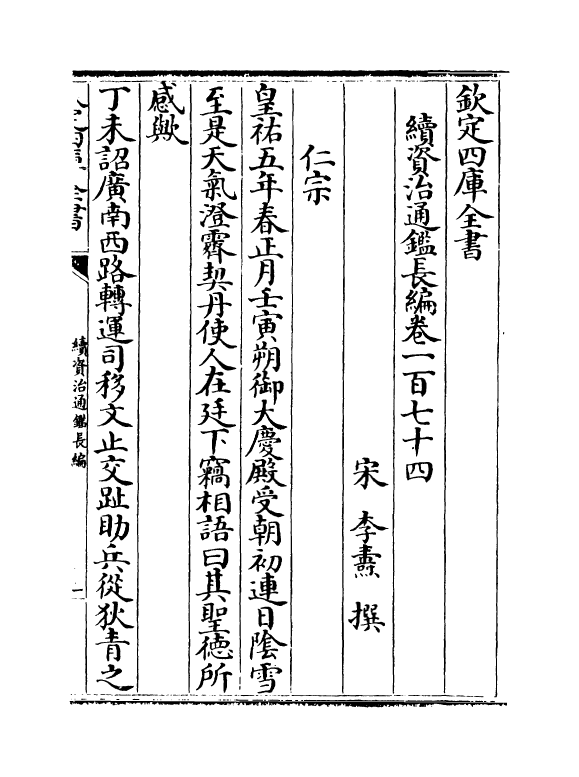 欽定四庫全書
續資治通鑑長編卷一百七十四
宋 李燾 撰
仁宗
皇祐五年春正月壬寅朔御大慶殿受朝初連日陰雪
至是天氣澄霽契丹使人在廷下竊相語曰其聖德所
感歟
丁未詔廣南西路轉運司移文止交趾助兵從狄青之
續資治通鑑長編
一